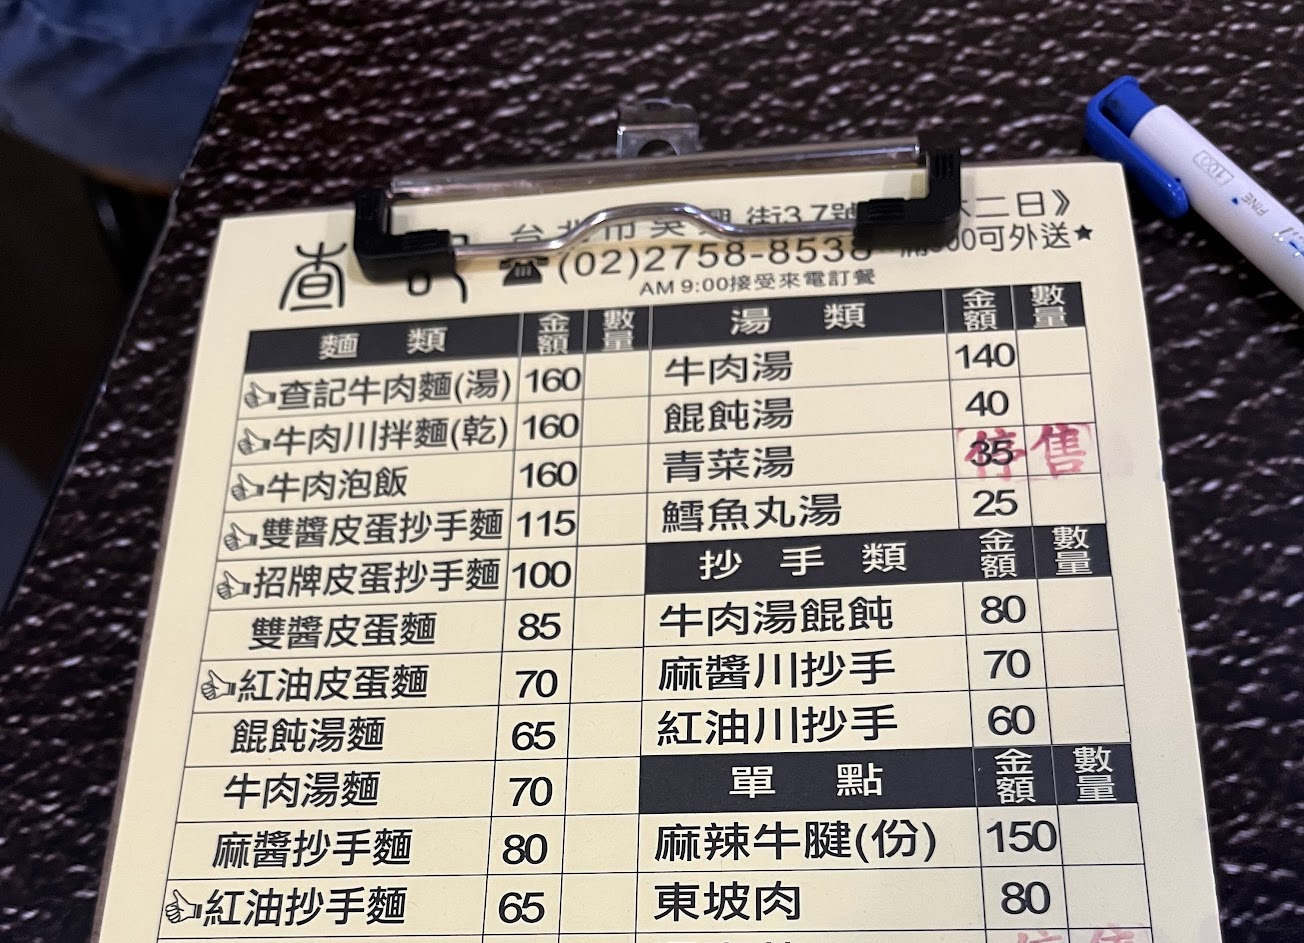 查記
台北市吳興街37號
二日》
☎(02)2758-8538
00可外送★
AM 9:00接受來電訂餐
麵類 金額 數量
查記牛肉麵(湯) 160
牛肉川拌麵(乾) 160
牛肉泡飯 160
雙醬皮蛋抄手麵 115
招牌皮蛋抄手麵 100
雙醬皮蛋麵 85
紅油皮蛋麵 70
餛飩湯麵 65
牛肉湯麵 70
麻醬抄手麵 80
紅油抄手麵 65
湯類 金額 數量
牛肉湯 140
餛飩湯 40
青菜湯 35 停售
鱈魚丸湯 25
抄手類 金額 數量
牛肉湯餛飩 80
麻醬川抄手 70
紅油川抄手 60
單點 金額 數量
麻辣牛腱(份) 150
東坡肉 80
100
FINE